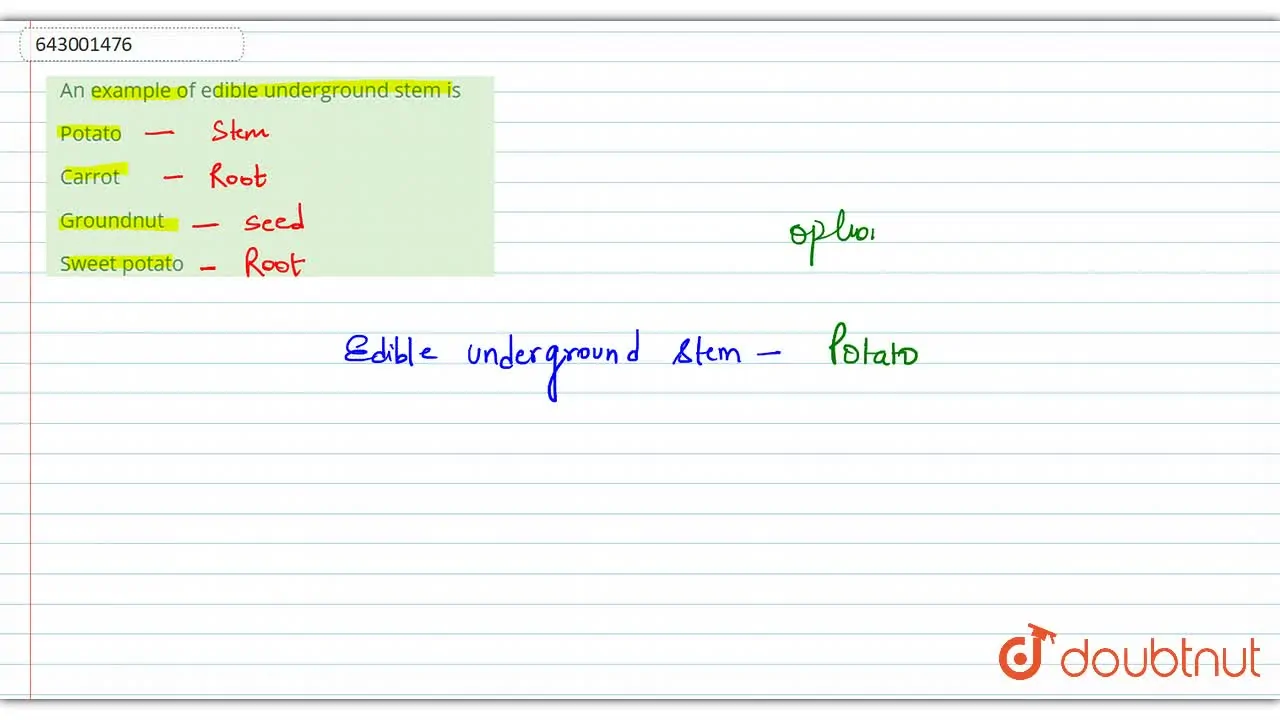 643001476
An example of edible underground stem is
Potato — Stem
Carrot — Root
Groundnut — seed
Sweet potato - Root
Edible underground stem — Potato
doubtnut